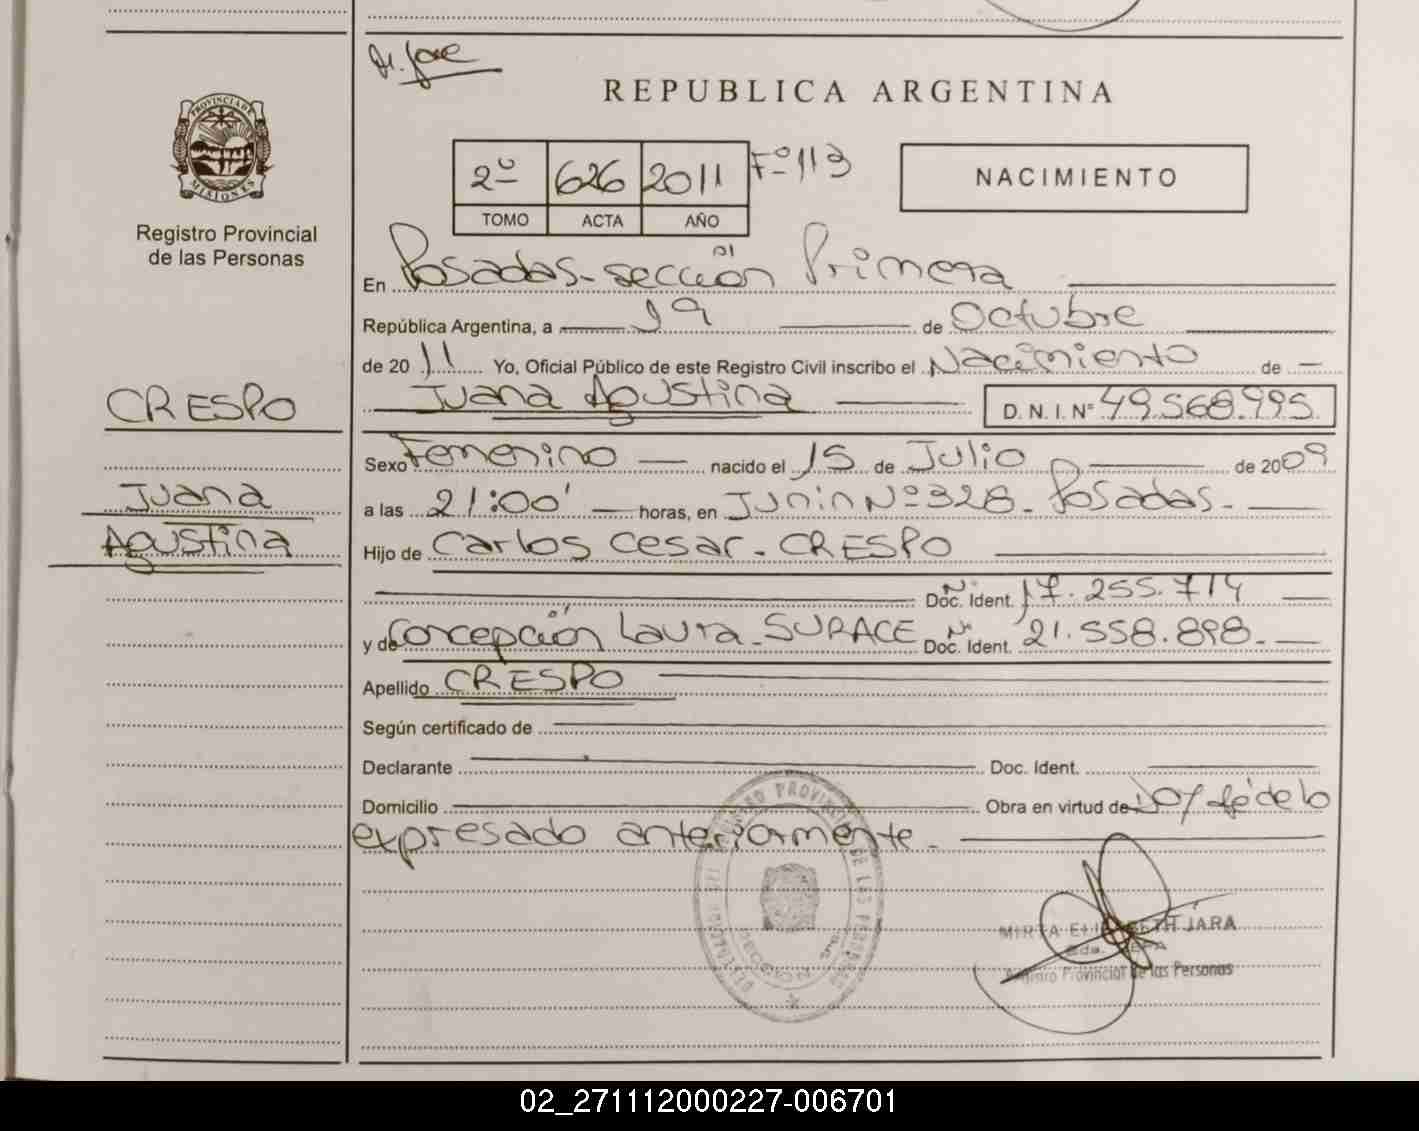 REPUBLICA ARGENTINA
PROVINCIA DE
MISIONES
Registro Provincial
de las Personas
2º 626 2011 Fº 113
TOMO ACTA AÑO
NACIMIENTO
En Posadas - sección Primera
República Argentina, a 19 de Octubre
de 2011 Yo, Oficial Público de este Registro Civil inscribo el Nacimiento de
Juana Agustina D. N. I. Nº 49.568.995
CRESPO
Juana
Agustina
Sexo Femenino nacido el 15 de Julio de 2009
a las 21:00' horas, en Junin Nº 328 - Posadas -
Hijo de Carlos Cesar - CRESPO
Doc. Ident. Nº 17.255.714
y de Concepción Laura - SURACE Doc. Ident. Nº 21.558.898 -
Apellido CRESPO
Según certificado de
Declarante Doc. Ident.
Domicilio Obra en virtud de Doy fé de lo
expresado anteriormente -
MIRTA ELIZABETH JARA
Registro Provincial de las Personas
02_271112000227-006701